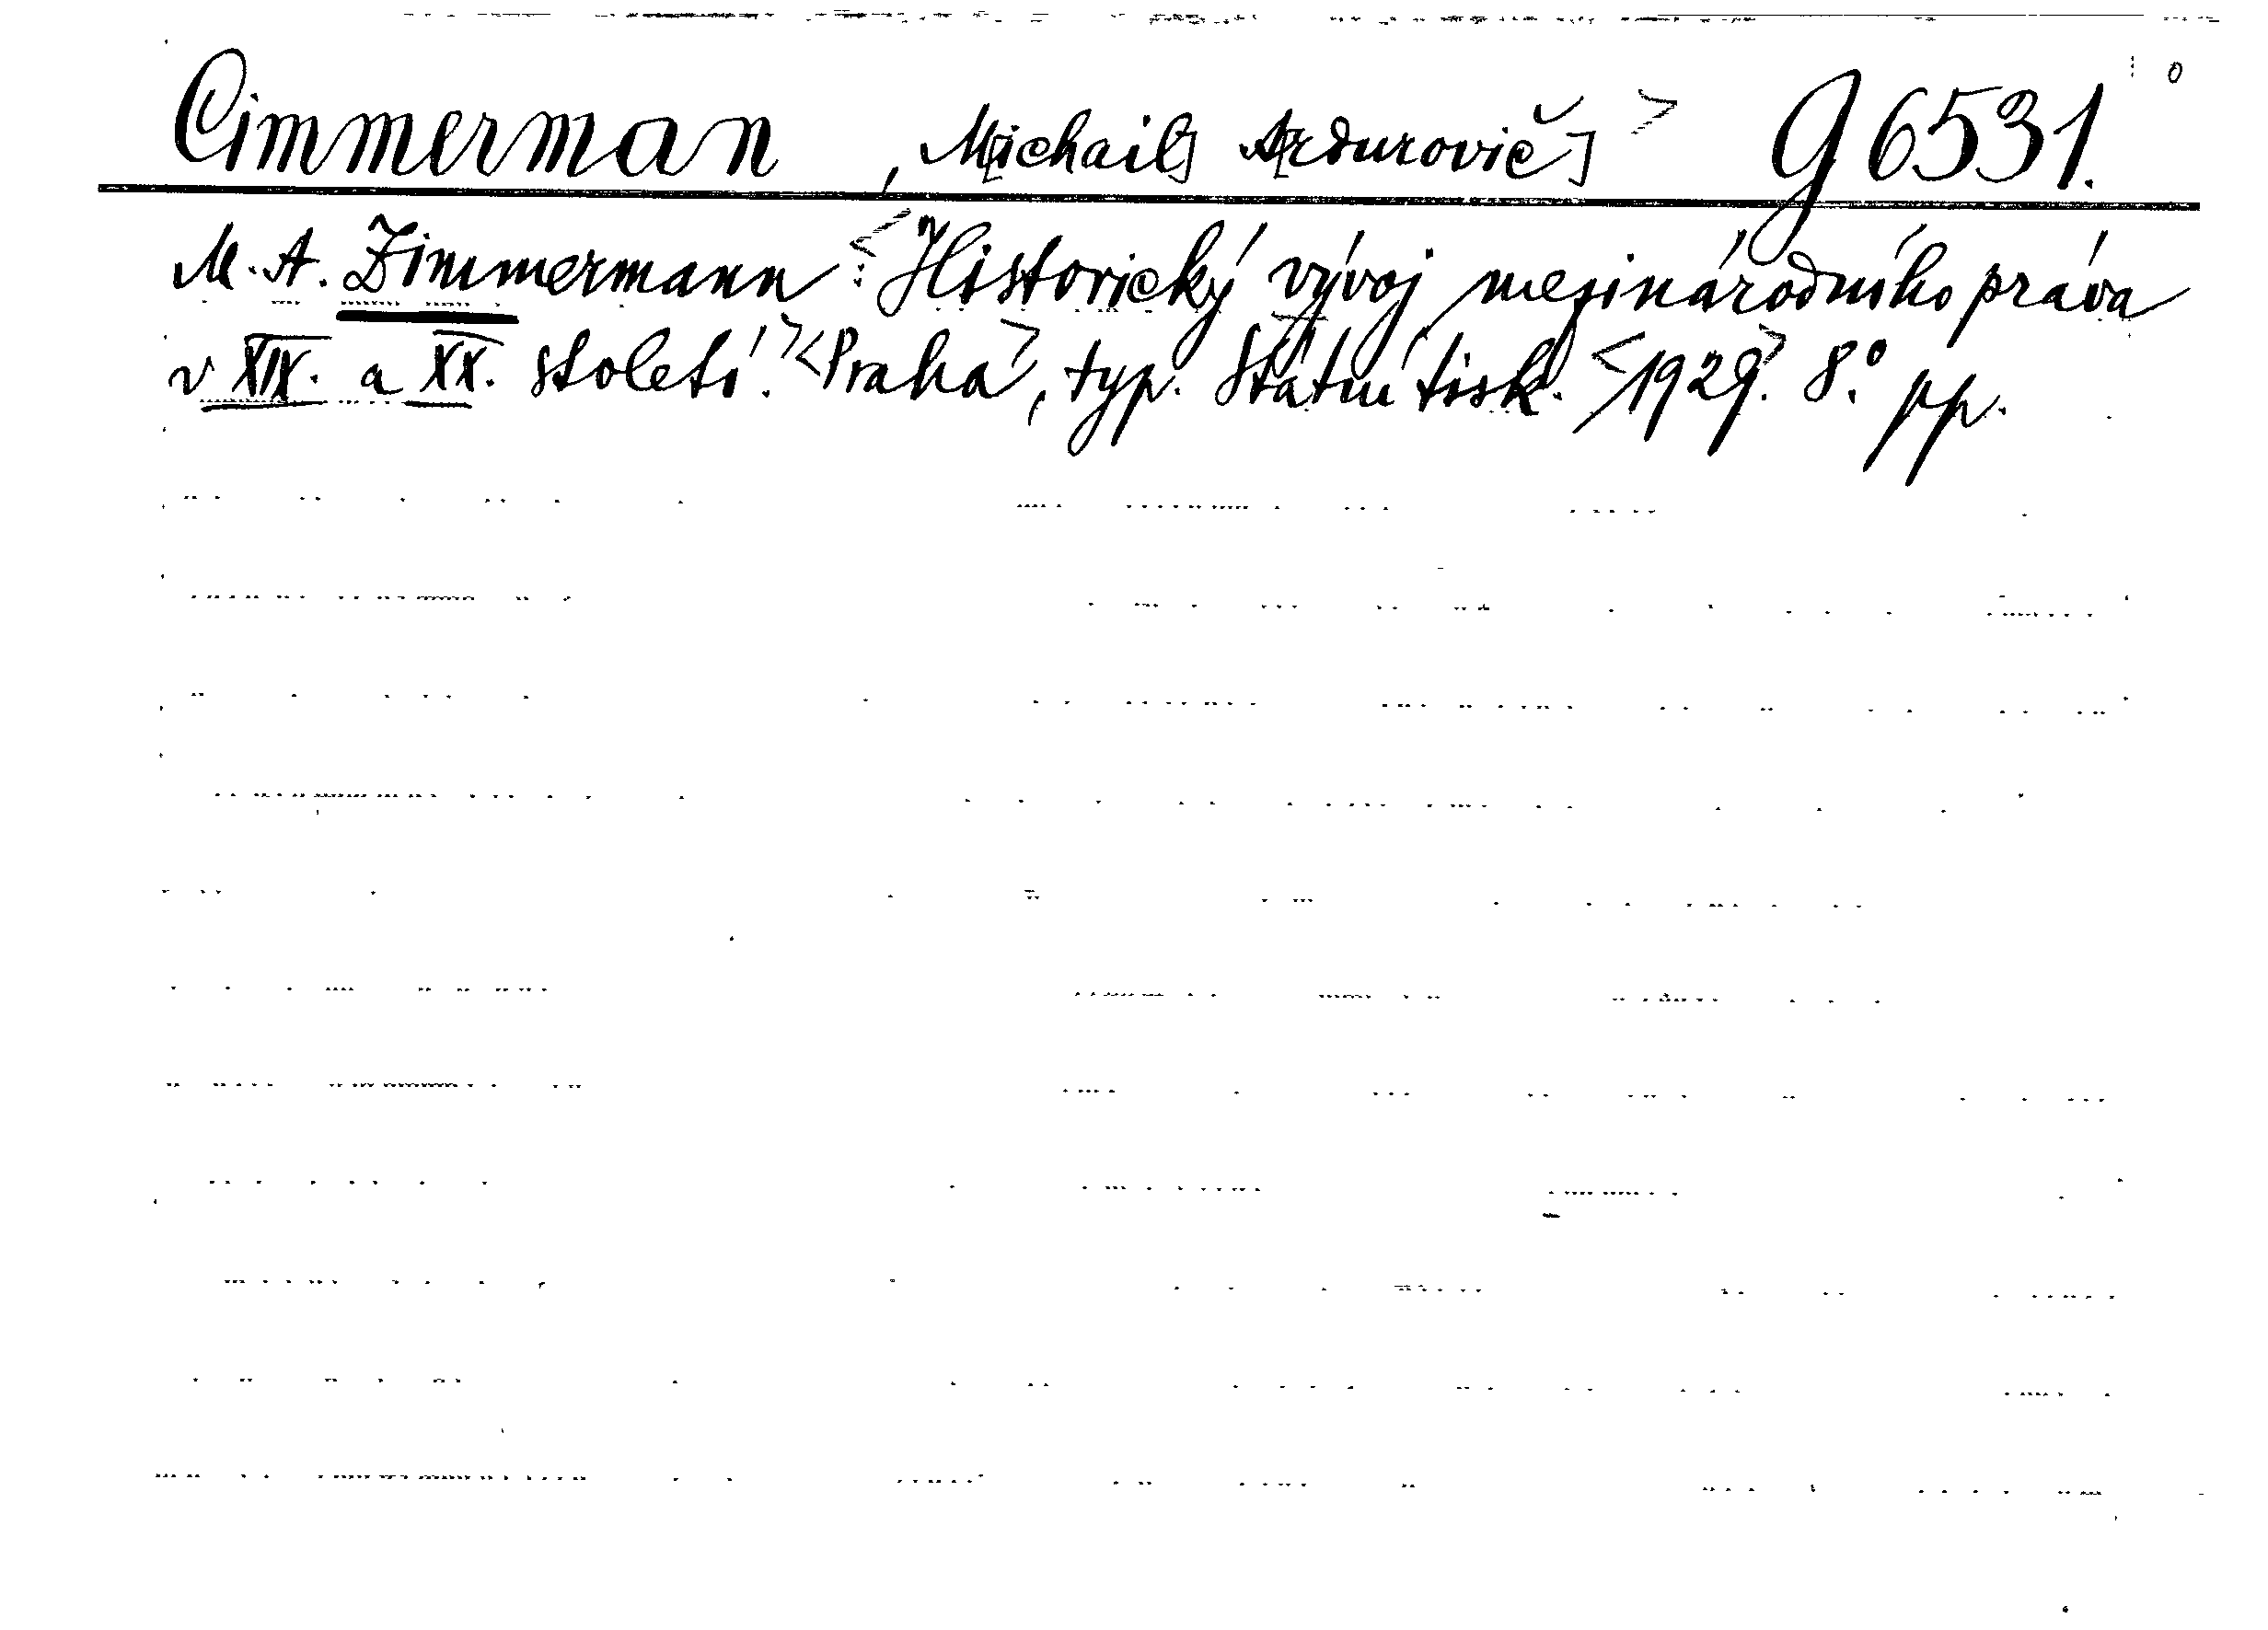 Cimmerman, M[ichail] A[rdurovič]> G 6531.
M. A. Zimmermann: <Historický vývoj mezinárodního práva
v XIX. a XX. století.> <Praha>, typ. Státní tisk. <1929>. 8.° pp.